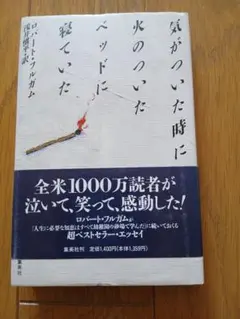 気がついた時に
火のついた
ベッドに
寝ていた
ロバート・フルガム
浅井愼平=訳
全米1000万読者が
泣いて、笑って、感動した!
ロバート・フルガムが、
『人生に必要な知恵はすべて幼稚園の砂場で学んだ』に続いておくる
超ベストセラー・エッセイ
集英社刊 定価1,400円(本体1,359円)
集英社